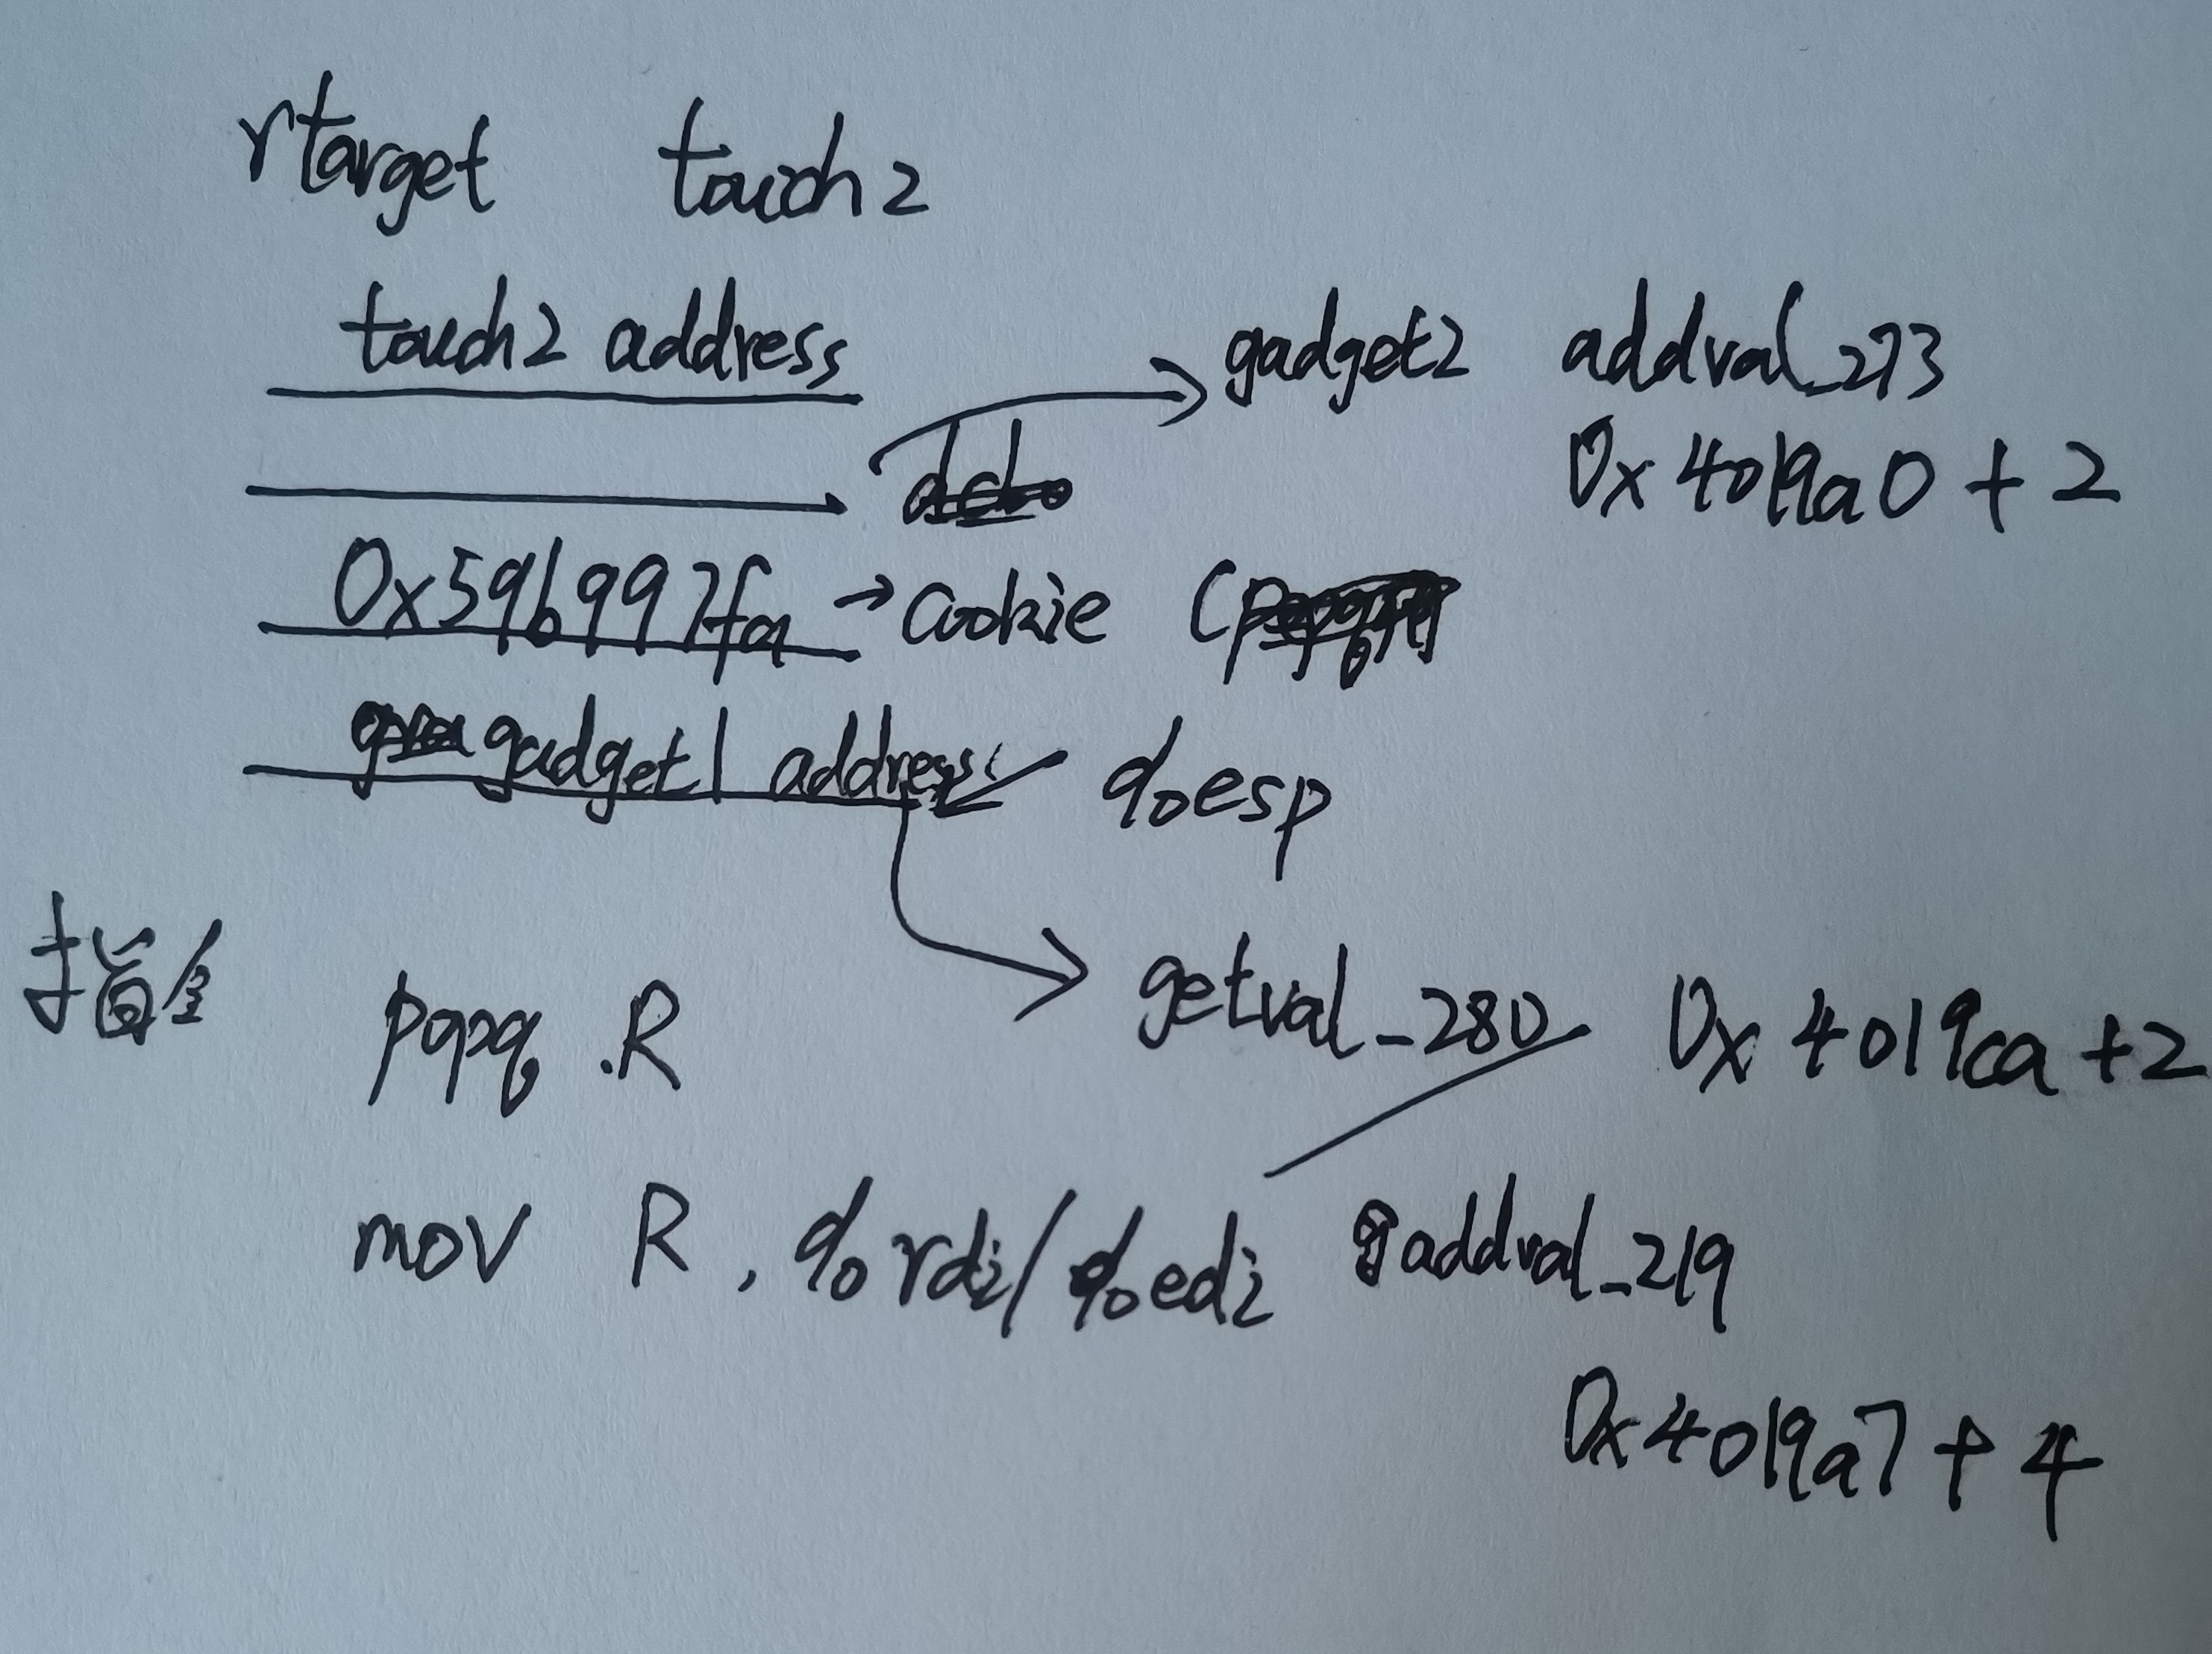 rtarget touch2
touch2 address
gadget2 addval_273
0x4019a0 + 2
0x59b997fa → cookie (
gadget1 address %esp
指令 popq .R getval_280 0x4019ca +2
mov R , %rdi/%edi addval_219
0x4019a7 + 4